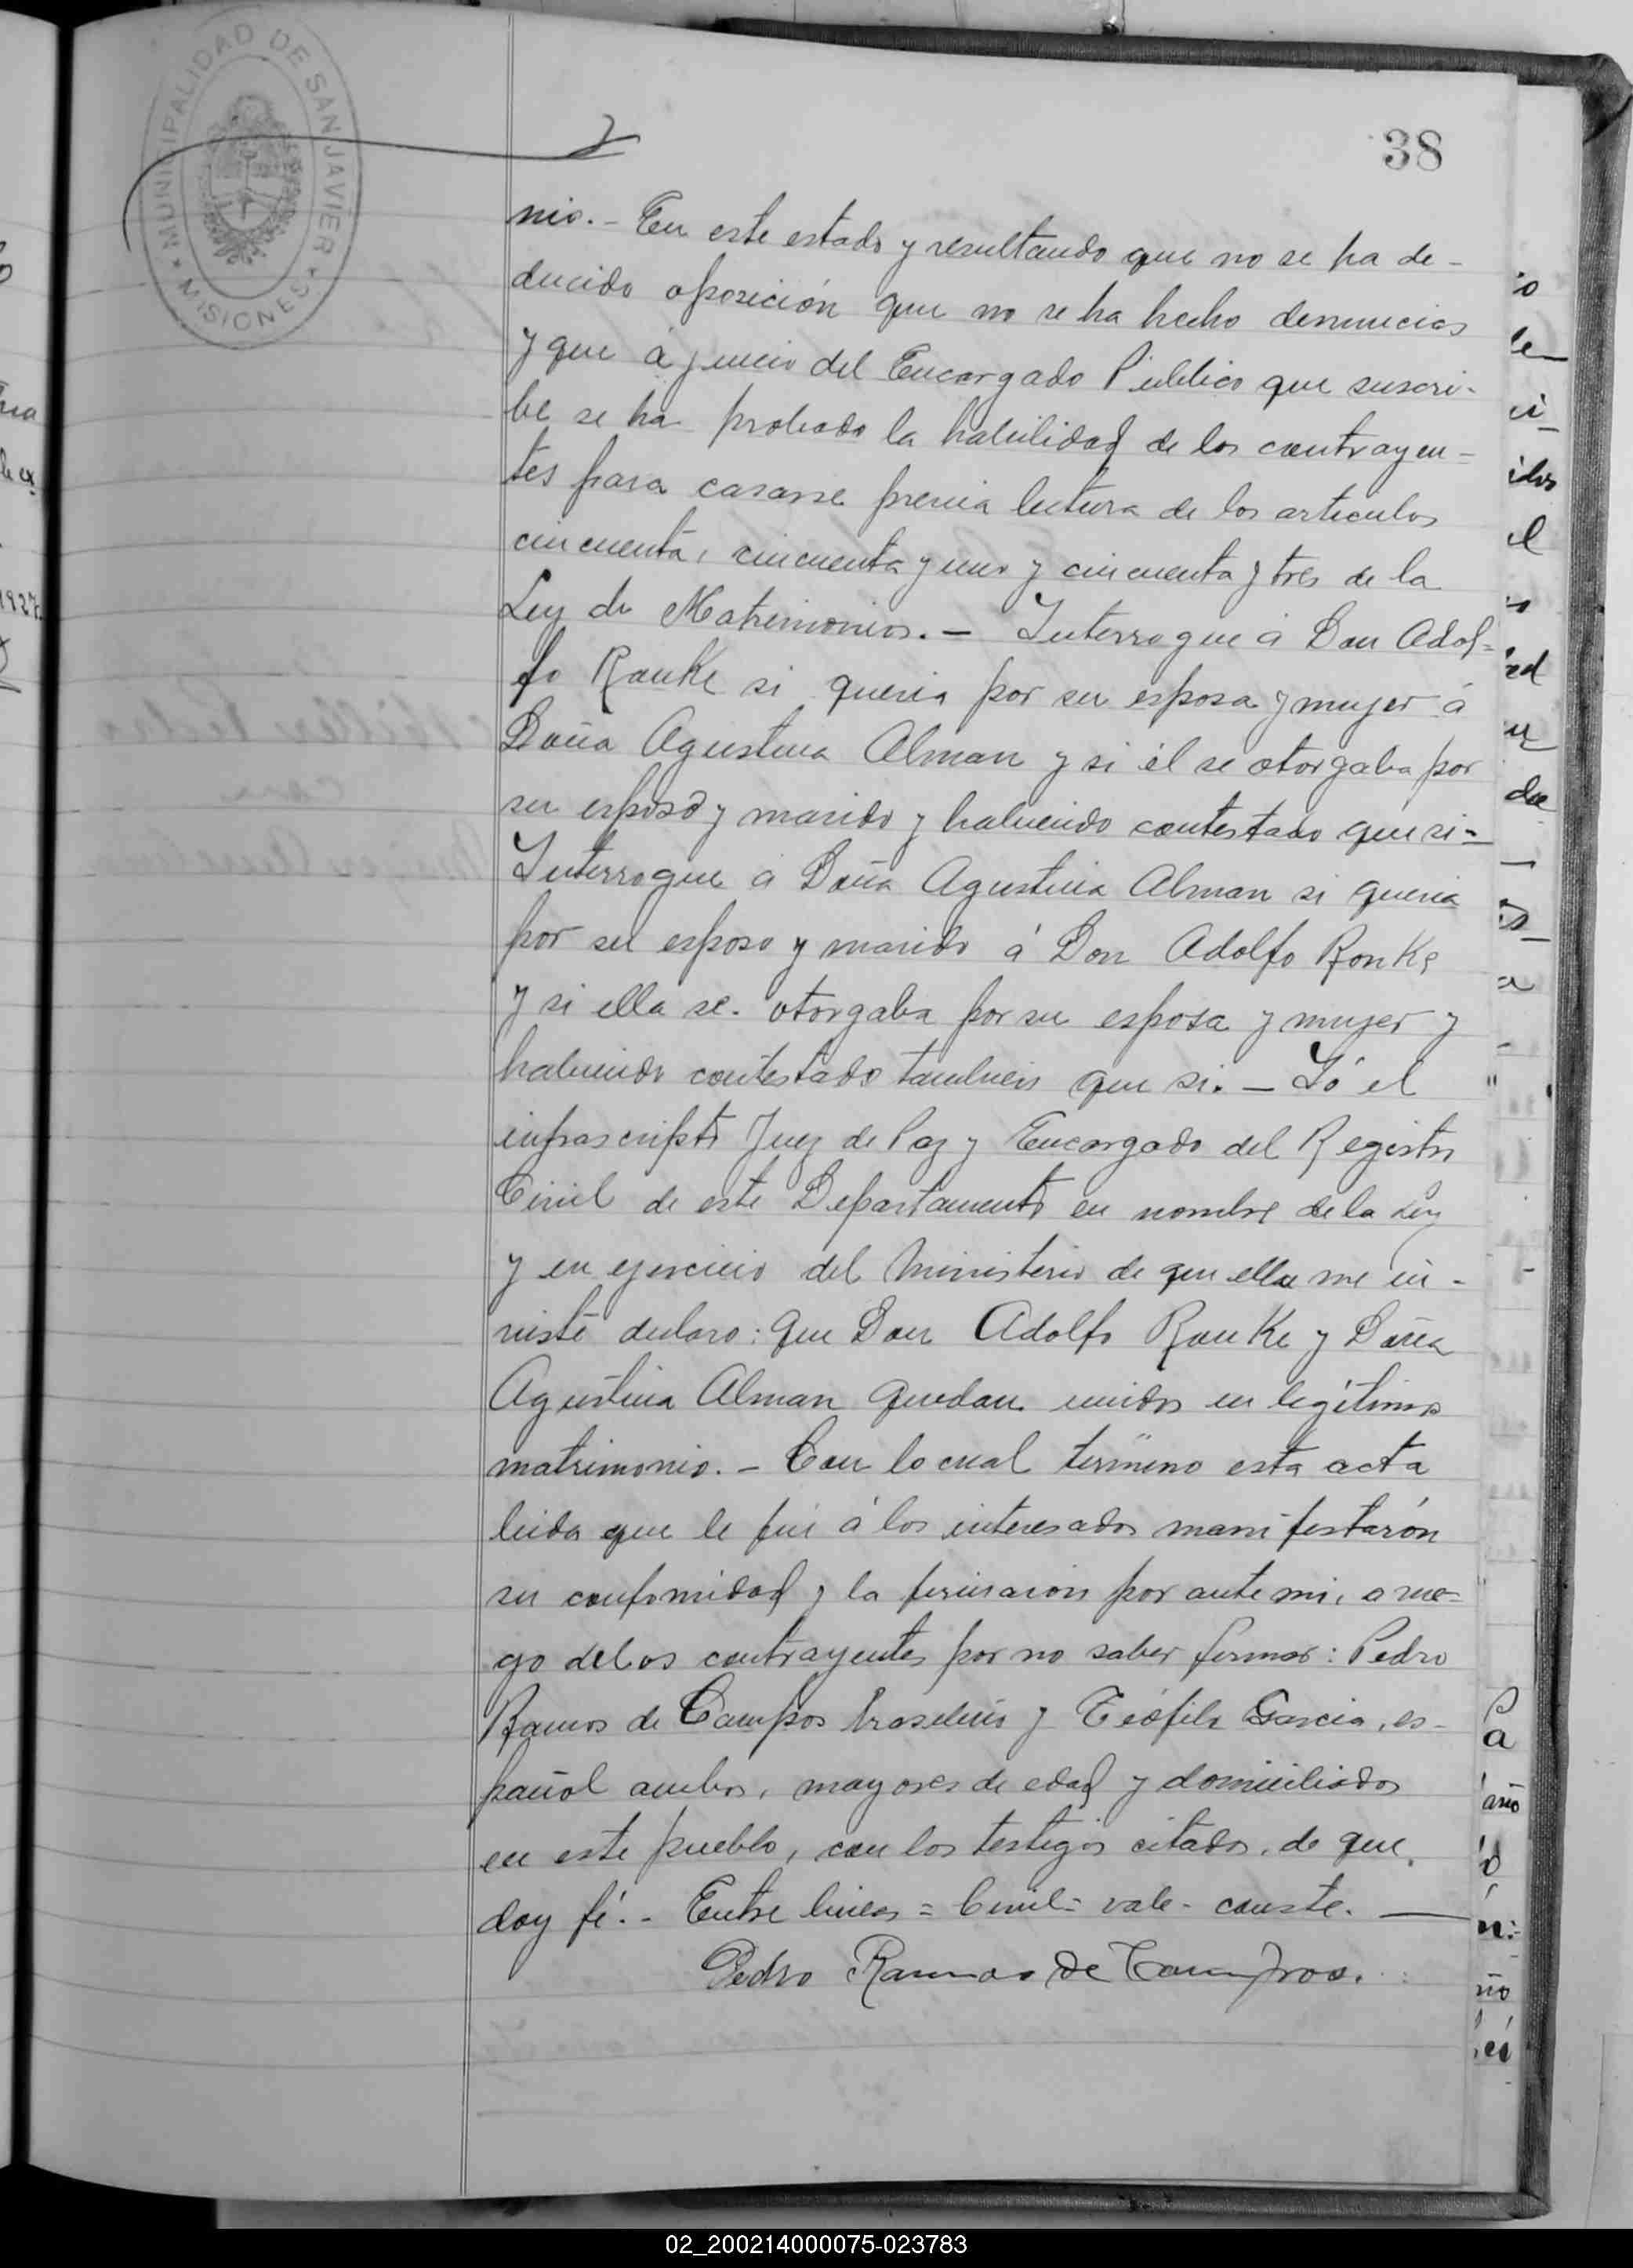 MUNICIPALIDAD DE SAN JAVIER
* MISIONES *
38
nio. - En este estado y resultando que no se ha de-
ducido oposición que no se ha hecho denuncias
y que á juicio del Encargado Público que suscri-
be se ha probado la habilidad de los contrayen-
tes para casarse previa lectura de los articulos
cincuenta, cincuenta y uno y cincuenta y tres de la
Ley de Matrimonios. - Interrogue á Don Adol-
fo Ranke si queria por su esposa y mujer á
Doña Agustina Alman y si él se otorgaba por
su esposo y marido y habiendo contestado que si -
Interrogue á Doña Agustina Alman si queria
por su esposo y marido á Don Adolfo Ranke
y si ella se otorgaba por su esposa y mujer y
habiendo contestado tambien que si. - Yó el
infrascripto Juez de Paz y Encargado del Registro
Civil de este Departamento en nombre de la Ley
y en ejercicio del Ministerio de que ella me in-
viste declaro: que Don Adolfo Ranke y Doña
Agustina Alman quedan unidos en legítimo
matrimonio. - Con lo cual termino esta acta
leida que le fué á los interesados manifestarón
su conformidad y la firmaron por ante mi, a rue=
go de los contrayentes por no saber firmar: Pedro
Ramos de Campos brasilero y Teófilo Garcia, es-
pañol ambos, mayores de edad y domiciliados
en este pueblo, con los testigos citados, de que
doy fé. - Entre lineas = Civil = vale - conste.
Pedro Ramos de Campos.
02_200214000075-023783